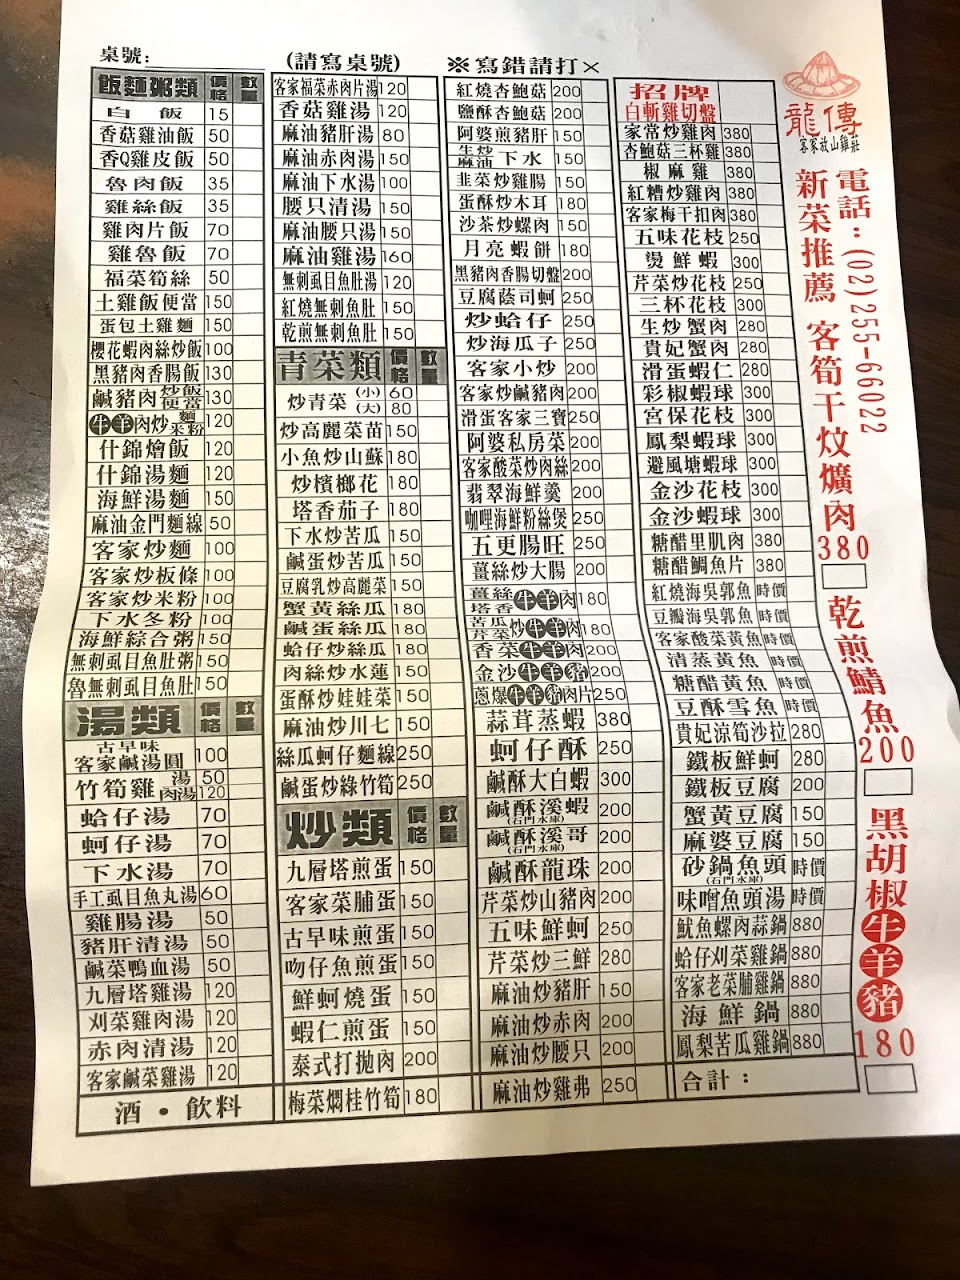 桌號:
(請寫桌號)
※寫錯請打×
飯麵粥類 價格 數量
白飯 15
香菇雞油飯 50
香Q雞皮飯 50
魯肉飯 35
雞絲飯 35
雞肉片飯 70
雞魯飯 70
福菜筍絲 50
土雞飯便當 150
蛋包土雞麵 150
櫻花蝦肉絲炒飯 100
黑豬肉香腸飯 130
鹹豬肉炒飯便當 130
牛羊肉炒麵米粉 120
什錦燴飯 120
什錦湯麵 120
海鮮湯麵 150
麻油金門麵線 50
客家炒麵 100
客家炒板條 100
客家炒米粉 100
下水冬粉 100
海鮮綜合粥 150
無刺虱目魚肚粥 150
魯無刺虱目魚肚 150
湯類 價格 數量
古早味客家鹹湯圓 100
竹筍雞 湯 50 肉湯 120
蛤仔湯 70
蚵仔湯 70
下水湯 70
手工虱目魚丸湯 60
雞腸湯 50
豬肝清湯 50
鹹菜鴨血湯 50
九層塔雞湯 120
刈菜雞肉湯 120
赤肉清湯 120
客家鹹菜雞湯 120
酒・飲料
客家福菜赤肉片湯 120
香菇雞湯 120
麻油豬肝湯 80
麻油赤肉湯 150
麻油下水湯 100
腰只清湯 150
麻油腰只湯 150
麻油雞湯 160
無刺虱目魚肚湯 120
紅燒無刺魚肚 150
乾煎無刺魚肚 150
青菜類 價格 數量
炒青菜 (小) 60 (大) 80
炒高麗菜苗 150
小魚炒山蘇 180
炒檳榔花 180
塔香茄子 180
下水炒苦瓜 150
鹹蛋炒苦瓜 150
豆腐乳炒高麗菜 150
蟹黃絲瓜 180
鹹蛋絲瓜 180
蛤仔炒絲瓜 180
肉絲炒水蓮 150
蛋酥炒娃娃菜 150
麻油炒川七 150
絲瓜蚵仔麵線 250
鹹蛋炒綠竹筍 250
炒類 價格 數量
九層塔煎蛋 150
客家菜脯蛋 150
古早味煎蛋 150
吻仔魚煎蛋 150
鮮蚵燒蛋 150
蝦仁煎蛋 150
泰式打拋肉 200
梅菜燜桂竹筍 180
紅燒杏鮑菇 200
鹽酥杏鮑菇 200
阿婆煎豬肝 150
生炒麻油下水 150
韭菜炒雞腸 150
蛋酥炒木耳 180
沙茶炒螺肉 150
月亮蝦餅 180
黑豬肉香腸切盤 200
豆腐蔭司蚵 250
炒蛤仔 250
炒海瓜子 250
客家小炒 200
客家炒鹹豬肉 200
滑蛋客家三寶 250
阿婆私房菜 200
客家酸菜炒肉絲 200
翡翠海鮮羹 200
咖哩海鮮粉絲煲 250
五更腸旺 250
薑絲炒大腸 200
薑絲塔香牛羊肉 180
苦瓜芹菜炒牛羊肉 180
香菜牛羊肉 200
金沙牛羊豬 200
蔥爆牛羊豬肉片 250
蒜茸蒸蝦 380
蚵仔酥 250
鹹酥大白蝦 300
鹹酥溪蝦(石門水庫) 200
鹹酥溪哥(石門水庫) 200
鹹酥龍珠 200
芹菜炒山豬肉 200
五味鮮蚵 250
芹菜炒三鮮 280
麻油炒豬肝 150
麻油炒赤肉 200
麻油炒腰只 200
麻油炒雞弗 250
招牌
白斬雞切盤
家常炒雞肉 380
杏鮑菇三杯雞 380
椒麻雞 380
紅糟炒雞肉 380
客家梅干扣肉 380
五味花枝 250
燙鮮蝦 300
芹菜炒花枝 250
三杯花枝 300
生炒蟹肉 280
貴妃蟹肉 280
滑蛋蝦仁 280
彩椒蝦球 300
宮保花枝 300
鳳梨蝦球 300
避風塘蝦球 300
金沙花枝 300
金沙蝦球 300
糖醋里肌肉 380
糖醋鯛魚片 380
紅燒海吳郭魚 時價
豆瓣海吳郭魚 時價
客家酸菜黃魚 時價
清蒸黃魚 時價
糖醋黃魚 時價
豆酥雪魚 時價
貴妃涼筍沙拉 280
鐵板鮮蚵 280
鐵板豆腐 200
蟹黃豆腐 150
麻婆豆腐 150
砂鍋魚頭(石門水庫) 時價
味噌魚頭湯 時價
魷魚螺肉蒜鍋 880
蛤仔刈菜雞鍋 880
客家老菜脯雞鍋 880
海鮮鍋 880
鳳梨苦瓜雞鍋 880
合計：
龍傳
客家放山雞莊
電話：(02)255-66022
新菜推薦 客筍干炆爌肉380 乾煎鯖魚200 黑胡椒牛羊豬180